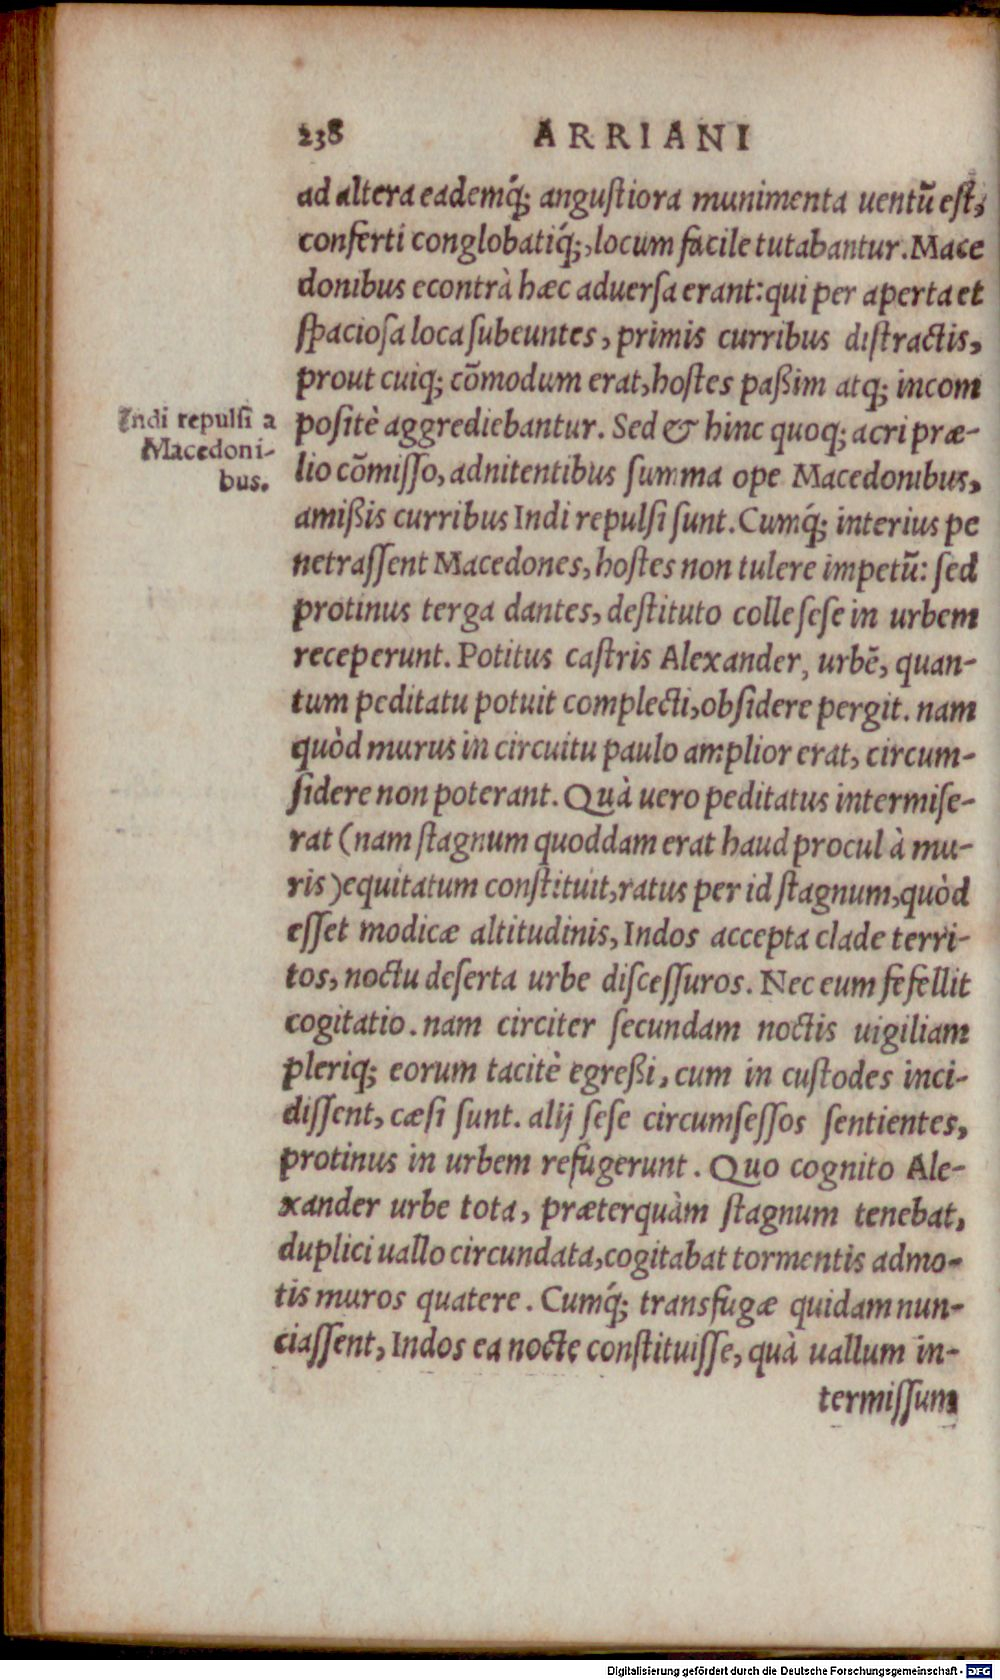 238 ARRIANI
ad altera eademq́; angustiora munimenta uentũ est,
conferti conglobatiq́;, locum facile tutabantur. Mace
donibus econtrà hæc aduersa erant: qui per aperta et
spaciosa loca subeuntes, primis curribus distractis,
prout cuiq; cõmodum erat, hostes paßim atq; incom
positè aggrediebantur. Sed & hinc quoq; acri præ-
lio cõmisso, adnitentibus summa ope Macedonibus,
amißis curribus Indi repulsi sunt. Cumq́; interius pe
netrassent Macedones, hostes non tulere impetũ: sed
protinus terga dantes, destituto colle sese in urbem
receperunt. Potitus castris Alexander, urbẽ, quan-
tum peditatu potuit complecti, obsidere pergit. nam
quòd murus in circuitu paulo amplior erat, circum-
sidere non poterant. Quà uero peditatus intermise-
rat (nam stagnum quoddam erat haud procul à mu-
ris) equitatum constituit, ratus per id stagnum, quòd
esset modicæ altitudinis, Indos accepta clade terri-
tos, noctu deserta urbe discessuros. Nec eum fefellit
cogitatio. nam circiter secundam noctis uigiliam
pleriq; eorum tacitè egreßi, cum in custodes inci-
dissent, cæsi sunt. alij sese circumsessos sentientes,
protinus in urbem refugerunt. Quo cognito Ale-
xander urbe tota, præterquàm stagnum tenebat,
duplici uallo circundata, cogitabat tormentis admo-
tis muros quatere. Cumq́; transfugæ quidam nun-
ciassent, Indos ea nocte constituisse, quà uallum in-
termissum
Indi repulsi a
Macedoni-
bus.
Digitalisierung gefördert durch die Deutsche Forschungsgemeinschaft - DFG